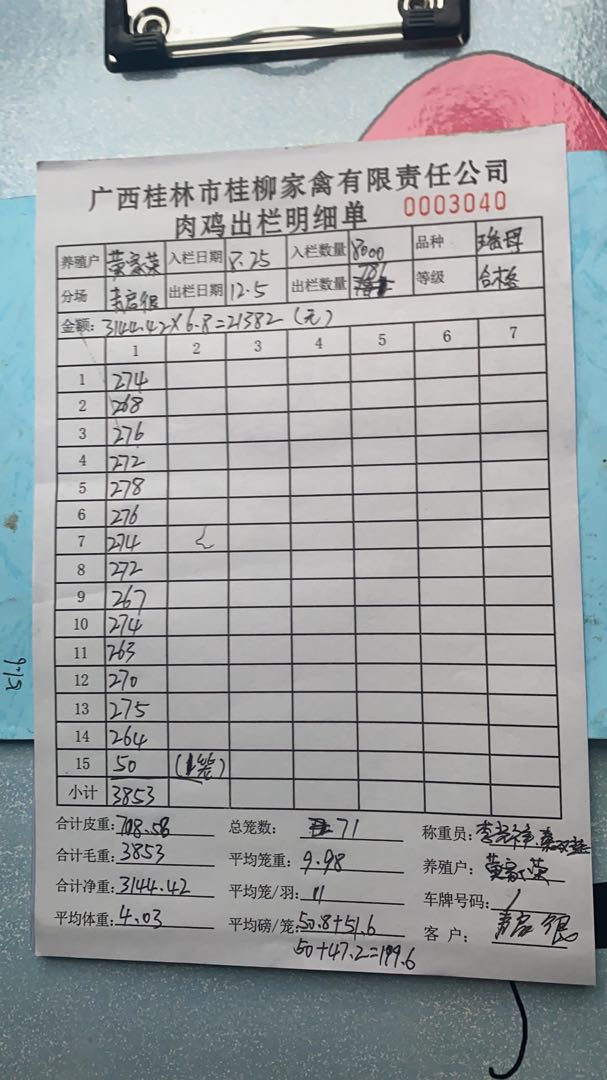 广西桂林市桂柳家禽有限责任公司
肉鸡出栏明细单 0003040
养殖户 黄家荣 入栏日期 8.25 入栏数量 8000 品种
分场 出栏日期 12.5 出栏数量 781 等级 合格
金额: 3144.42×6.8=21382(元)
1 2 3 4 5 6 7
1 274
2 268
3 276
4 272
5 278
6 276
7 274
8 272
9 267
10 274
11 263
12 270
13 275
14 264
15 50 (1笼)
小计 3853
合计皮重: 708.58 总笼数: 71 称重员:
合计毛重: 3853 平均笼重: 9.98 养殖户: 黄家荣
合计净重: 3144.42 平均笼/羽: 11 车牌号码: /
平均体重: 4.03 平均磅/笼: 50.8+51.6 客户:
50+47.2=199.6
51.6